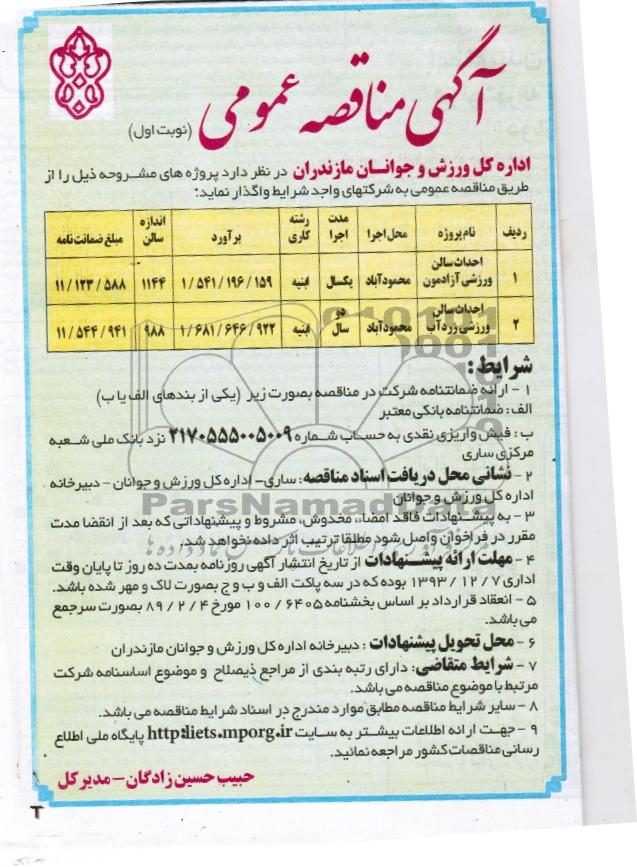 آگهی مناقصه عمومی (نوبت اول)
اداره کل ورزش و جوانان مازندران در نظر دارد پروژه های مشروحه ذیل را از
طریق مناقصه عمومی به شرکتهای واجد شرایط واگذار نماید:
ردیف نام پروژه محل اجرا مدت اجرا رشته کاری برآورد اندازه سالن مبلغ ضمانت نامه
۱ احداث سالن ورزشی آزادمون محمودآباد یکسال ابنیه ۱/۵۴۱/۱۹۶/۱۵۹ ۱۱۴۴ ۱۱/۱۲۳/۵۸۸
۲ احداث سالن ورزشی زردآب محمودآباد دو سال ابنیه ۱/۶۸۱/۶۴۶/۹۲۲ ۹۸۸ ۱۱/۵۴۴/۹۴۱
شرایط:
۱ - ارائه ضمانتنامه شرکت در مناقصه بصورت زیر (یکی از بندهای الف یا ب)
الف: ضمانتنامه بانکی معتبر
ب: فیش واریزی نقدی به حساب شماره ۲۱۷۰۵۵۵۰۰۵۰۰۹ نزد بانک ملی شعبه
مرکزی ساری
۲ - نشانی محل دریافت اسناد مناقصه: ساری - اداره کل ورزش و جوانان - دبیرخانه
اداره کل ورزش و جوانان
۳ - به پیشنهادات فاقد امضاء، مخدوش، مشروط و پیشنهاداتی که بعد از انقضا مدت
مقرر در فراخوان واصل شود مطلقا ترتیب اثر داده نخواهد شد.
۴ - مهلت ارائه پیشنهادات از تاریخ انتشار آگهی روزنامه بمدت ده روز تا پایان وقت
اداری ۱۳۹۳/۱۲/۷ بوده که در سه پاکت الف و ب و ج بصورت لاک و مهر شده باشد.
۵ - انعقاد قرارداد بر اساس بخشنامه ۱۰۰/۶۴۰۵ مورخ ۸۹/۲/۴ بصورت سرجمع
می باشد.
۶ - محل تحویل پیشنهادات : دبیرخانه اداره کل ورزش و جوانان مازندران
۷ - شرایط متقاضی: دارای رتبه بندی از مراجع ذیصلاح و موضوع اساسنامه شرکت
مرتبط با موضوع مناقصه می باشد.
۸ - سایر شرایط مناقصه مطابق موارد مندرج در اسناد شرایط مناقصه می باشد.
۹ - جهت ارائه اطلاعات بیشتر به سایت http:iets.mporg.ir پایگاه ملی اطلاع
رسانی مناقصات کشور مراجعه نمائید.
حبیب حسین زادگان - مدیر کل
ParsNamadData